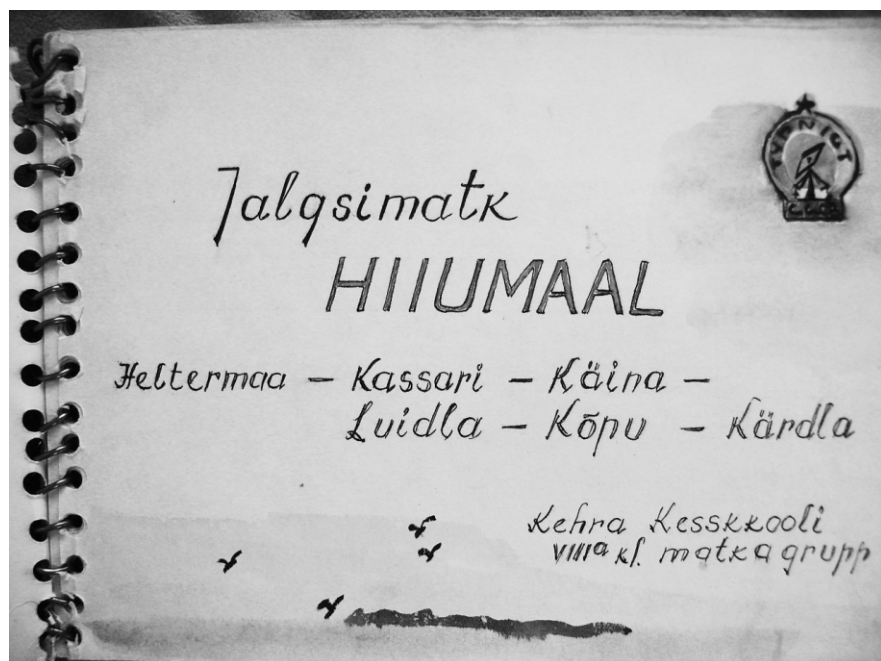 Jalgsimatk
HIIUMAAL
Heltermaa – Kassari – Käina –
Luidla – Kõpu – Kärdla
Kehra Kesskkooli
VIIIa kl. matkagrupp